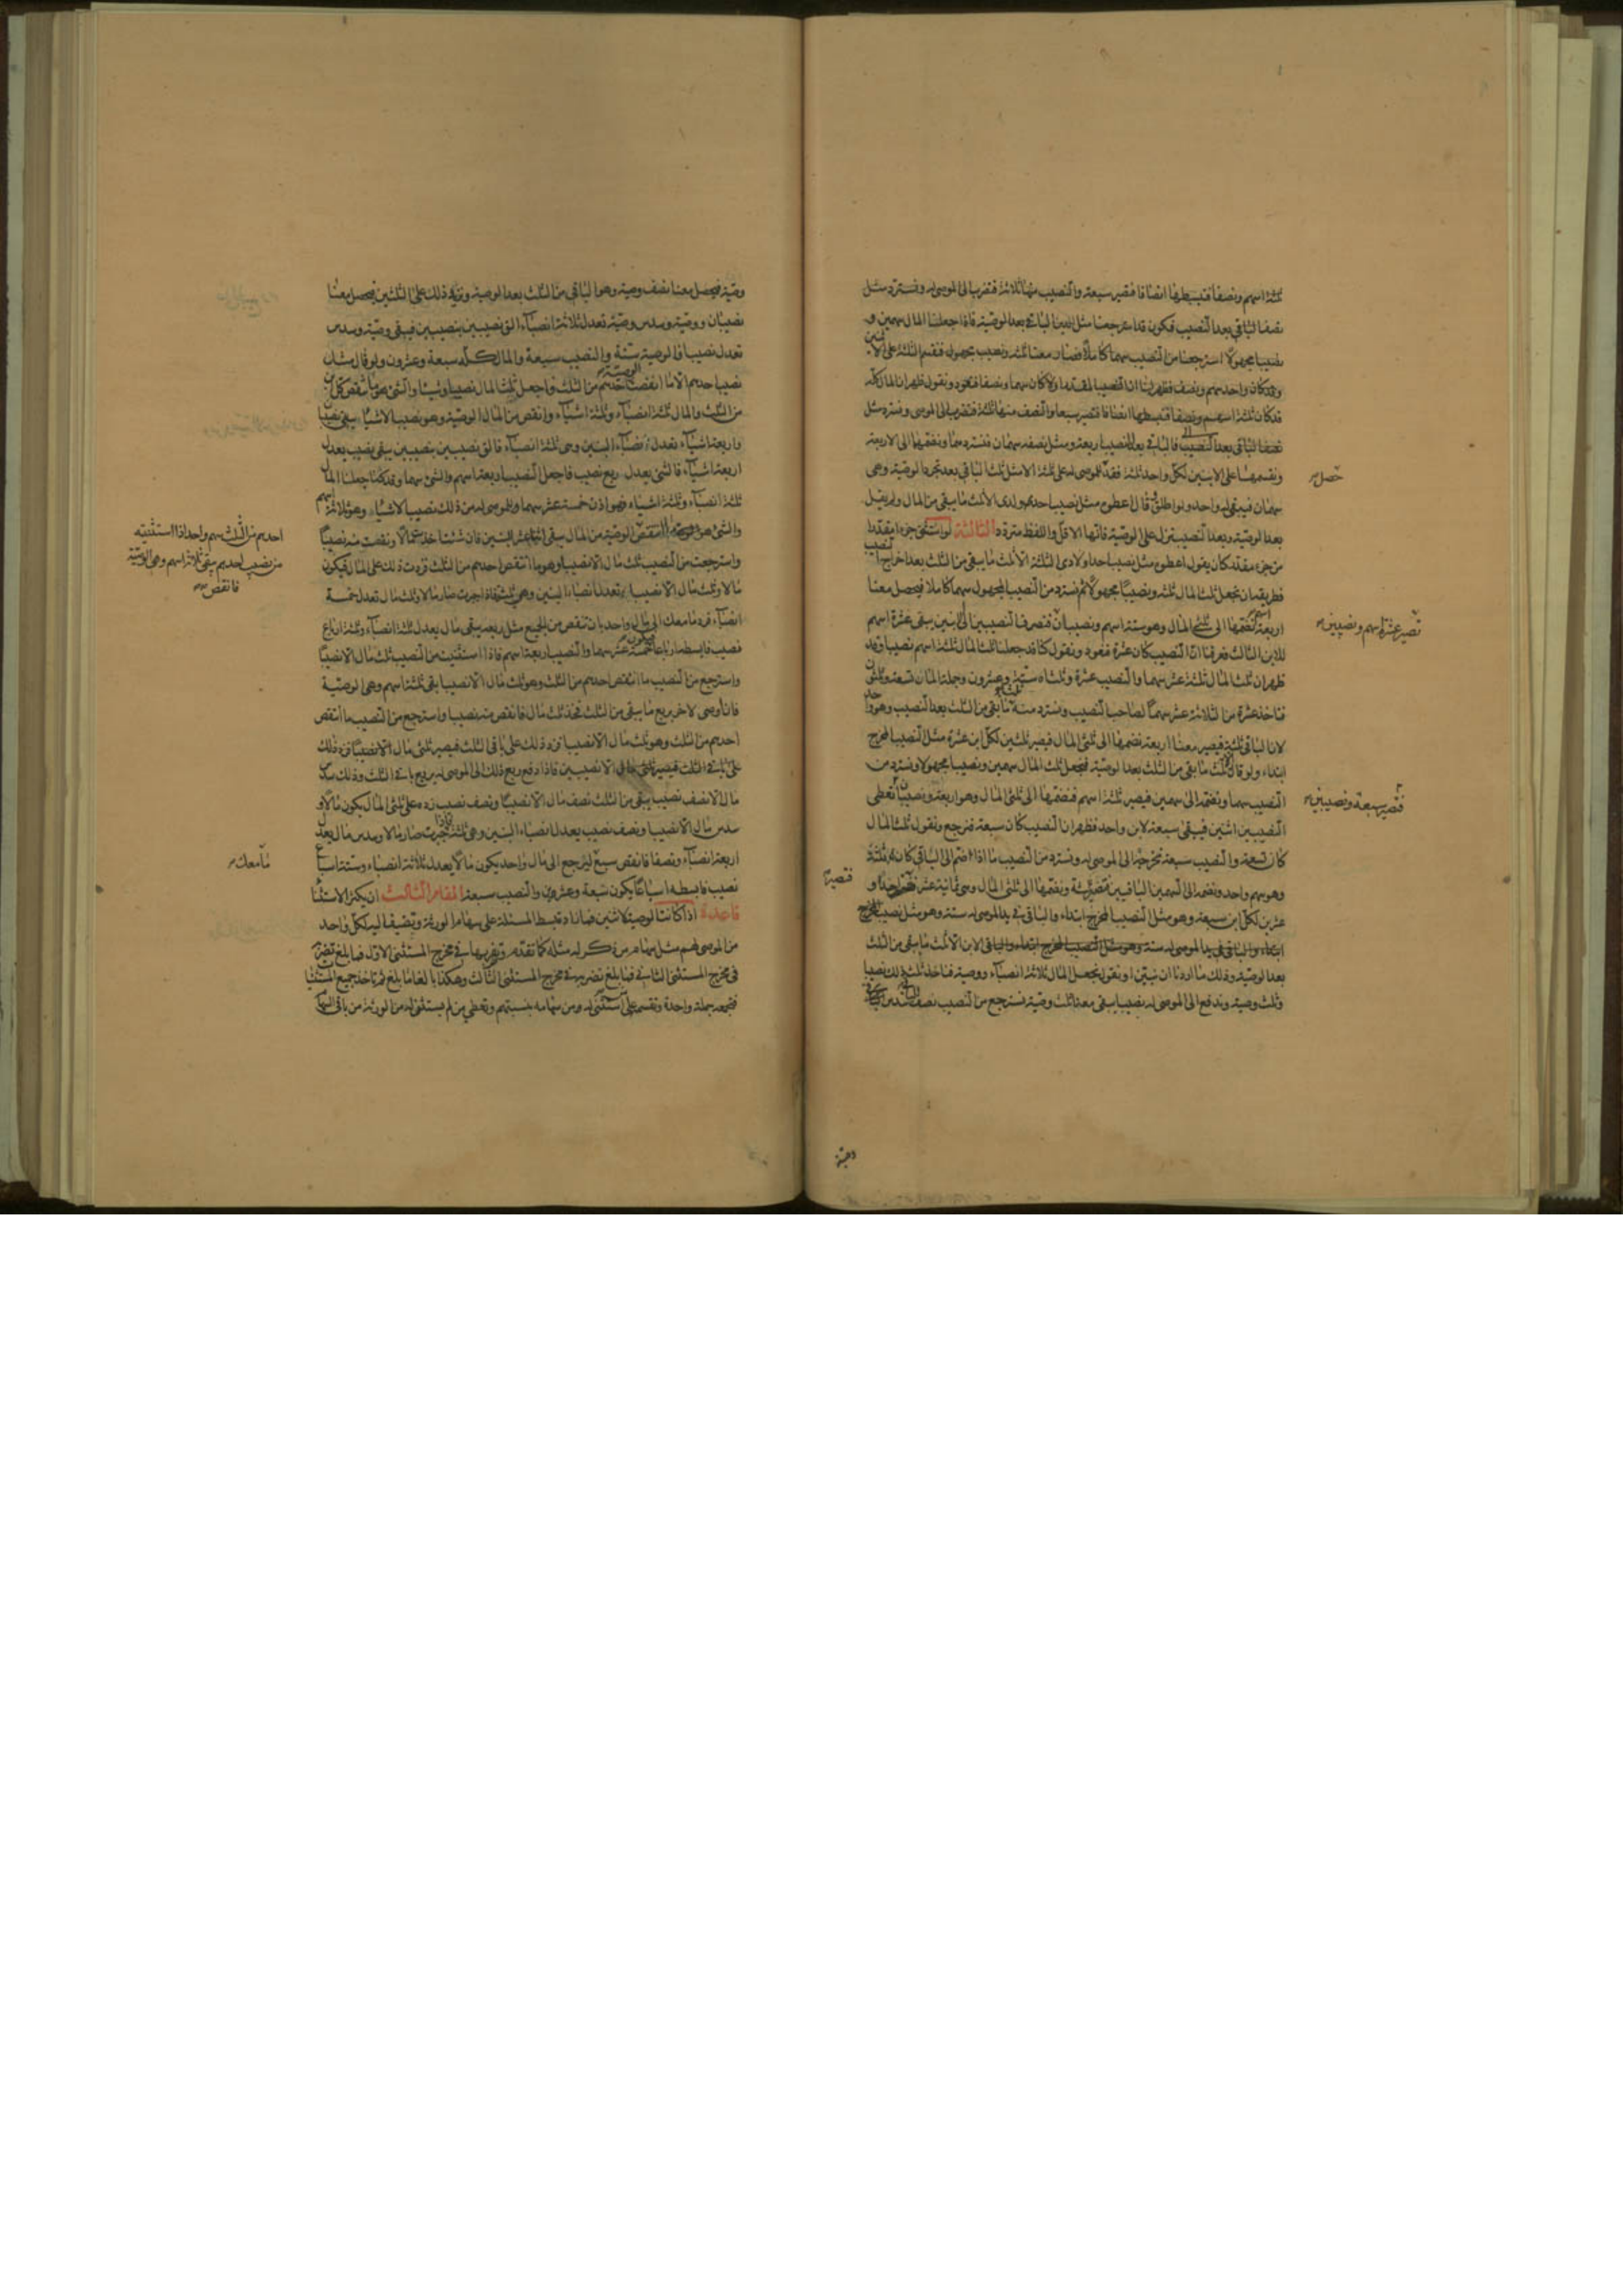 ثلثة اسهم ونصفا فتبسطها انصافا فتصير سبعة والنصيب منها ثلاثة فتقر بها الى الموصى له ونسترد مثل
نصف الباقي بعد النصيب فيكون قد استرجعنا مثل الباقي بعد الوصية فاذا جعلنا المال سهمين و
نصيبا مجهولا استرجعنا من النصيب سهما كاملا فصار معنا ثلثة ونصيب مجهول فنقسم الثلثة على الابنين
وقد كان واحد سهم ونصف فظهر لنا ان النصيب المقتدها ولا كان سهما ونصفا فنعود ونقول ظهر ان المال كله
قد كان ثلثة اسهم ونصفا فتبسطها انصافا فتصير سبعا والنصف منها ثلثة فتقر بها الى الموصى ونسترد مثل
نصف الباقي بعد النصيب فالباقي بعد النصيب اربعة ومثل نصفه سهمان فنستردهما ونضمهما الى الاربعة
ونقسمها على الابنين لكل واحد ثلثة فقد للموصى له على ثلثة الا مثل ثلث الباقي بعد تجرد الوصية وهي
سهمان فيبقى له واحد ولو اطلق وقال اعطوه مثل نصيب احدهم ولدى الا ثلث ما يبقى من المال ولم يقل
بعد الوصية وبعد النصيب تنزل على الوصية فانها الاقل واللفظ متردد الثالثة لو استثنى جزءا مقدرا
من جزء مقدر كان يقول اعطوه مثل نصيب احد اولادى الثلثة الا ثلث ما يبقى من الثلث بعد اخراج النصيب
فطريقه ان تجعل ثلث المال ثلثة ونصيبا مجهولا ثم نسترد من النصيب المجهول سهما كاملا فيحصل معنا
اربعة اسهم نضمها الى ثلثى المال وهو ستة اسهم ونصيبان فنصرف النصيبين الى ابنين يبقى عشرة اسهم
للابن الثالث فعرفنا ان النصيب كان عشرة فنعود ونقول كنا قد جعلنا ثلث المال ثلثة اسهم ونصيبا وقد
ظهر ان ثلث المال ثلثة عشر سهما والنصيب عشرة وثلثاه ستة وعشرون وجملة المال تسعة وثلثون
فناخذ عشرة من الثلاثة عشر سهما لصاحب النصيب ونسترد منه ثلث ما بقى من الثلث بعد النصيب وهو واحد
لان الباقي ثلثة فيصير معنا اربعة نضمها الى ثلثى المال فيصير ثلثين لكل ابن عشرة مثل النصيب المخرج
ابتداء ولو قال الا ثلث ما بقى من الثلث بعد الوصية فيجعل ثلث المال سهمين ونصيبا مجهولا ونسترد من
النصيب سهما ونضمه الى سهمين فيصير ثلثة اسهم فنضمها الى ثلثى المال وهو اربعة ونصيبان تعطى
النصيبين اثنين فيبقى سبعة لابن واحد فظهر ان النصيب كان سبعة فنرجع ونقول ثلث المال
كان تسعة والنصيب سبعة نخرجه الى الموصى له ونسترد من النصيب ما اذا ضم الى الباقي كان ثلثة
وهو سهم واحد ونضمه الى السهمين الباقيين فتصير ثلثة ونضمها الى ثلثى المال وهى ثمانية عشر فتصير احدا و
عشرين لكل ابن سبعة وهو مثل النصيب المخرج ابتداء والباقي في يد الموصى له ستة وهو مثل نصيب المخرج
ابتداء والباقي في يد الموصى له ستة وهو مثل النصيب المخرج ابتداء والباقي الابن الا ثلث ما بقى من الثلث
بعد الوصية وذلك ما اردنا ان نبين او نقول نجعل المال ثلاثة انصباء ووصية فناخذ ثلث ذلك نصيبا
وثلث وصية وندفع الى الموصى له نصيبا يبقى معنا ثلث وصية نسترجع من النصيب نصف
حصل
تصير عشرة اسهم ونصيبين
فتصير سبعة ونصيبين
فتصير
وصية
وصية فيحصل معنا نصف وصية وهو الباقي من الثلث بعد الوصية ونزيد ذلك على الثلثين فيحصل معنا
نصيبان ووصية وسدس وصية تعدل ثلاثة انصباء الق نصيبين بنصيبين فيبقى وصية وسدس
تعدل نصيبا فالوصية ستة والنصيب سبعة والمال كله سبعة وعشرون ولو قال مثل
نصيب احدهم الا ما انقصت الوصية احدهم من الثلث فاجعل ثلث المال نصيبا وشيئا والشئ هو ما نقص كل ابن
من الثلث والمال ثلثة انصباء وثلثة اشياء وانقص من المال الوصية وهو نصيب الا شيئا يبقى نصيبان
واربعة اشياء تعدل انصباء البنين وهى ثلثة انصباء فالق نصيبين بنصيبين يبقى نصيب يعدل
اربعة اشياء فالشئ يعدل ربع نصيب فاجعل النصيب اربعة اسهم والشئ سهما وقد كنا جعلنا المال
ثلثة انصباء وثلثة اشياء فهو اذن خمسة عشر سهما وللموصى له من ذلك نصيب الا شيئا وهو ثلاثة اسهم
والشئ هو النقص الوصية من المال يبقى اثنا عشر للبنين فان شئت اخذت مالا ونقصت منه نصيبا
واسترجعت من النصيب ثلث مال الا نصيبا وهو ما انتقص احدهم من الثلث فزدت ذلك على المال فيكون
مالا وثلث مال الا نصيبا تعدل انصباء البنين وهى ثلثة فاذا جبرت صار مالا وثلث مال تعدل خمسة
انصباء فرد ما معك الى مال واحد بان تنقص من الجميع مثل ربعه يبقى مال يعدل ثلثة انصباء وثلثة ارباع
نصيب فابسطه ارباعا تكون خمسة عشر سهما والنصيب اربعة اسهم فاذا استثنيت من النصيب ثلث مال الا نصيبا
واسترجع من النصيب ما انتقص احدهم من الثلث وهو ثلث مال الا نصيبا بقى ثلثة اسهم وهى الوصية
فان اوصى لاخر بربع ما يبقى من الثلث فخذ ثلث مال فانقص منه نصيبا واسترجع من النصيب ما انتقص
احدهم من الثلث وهو ثلث مال الا نصيبا فزد ذلك على باقى الثلث فيصير ثلثى مال الا نصيبا فزد ذلك
على باقى الثلث فيصير ثلثى مال الا نصيبين فاذا دفع ربع ذلك الى الموصى له بربع باقى الثلث وذلك سدس
مال الا نصف نصيب يبقى من الثلث نصف مال الا نصيبا ونصف نصيب زده على ثلثى المال يكون مالا و
سدس مال الا نصيبا ونصف نصيب يعدل انصباء البنين وهى ثلثة فاذا جبرت صار مالا وسدس مال يعدل
اربعة انصباء ونصفا فانقص سبع ليرجع الى مال واحد يكون مالا يعدل ثلاثة انصباء وستة اسباع
نصيب فابسطه اسباعا يكون سبعة وعشرين والنصيب سبعة المقام الثالث ان يكثر الاستثناء
قاعدة اذا كانت الوصية لاثنين فمازاد تبسط المسئلة على سهام الورثة وتضيف اليه لكل واحد
من الموصى لهم مثل سهام من ذكر له مثله كما تقدم وتضربها في مخرج المستثنى الاول فما بلغ تضربه
في مخرج المستثنى الثانى فما بلغ تضربه في مخرج المستثنى الثالث وهكذا بالغا ما بلغ ثم تاخذ جميع المستثنيات
فتجمعه جملة واحدة وتقسمه على من استثنى له ومن سهامه بنسبتهم وتعطى من لم يستثنى له من الورثة من باقى السهام
احدهم من الثلث سهم واحد اذا استثنيته
من نصيب احدهم يبقى ثلاثة اسهم وهى الوصية
فانقص
ما معك